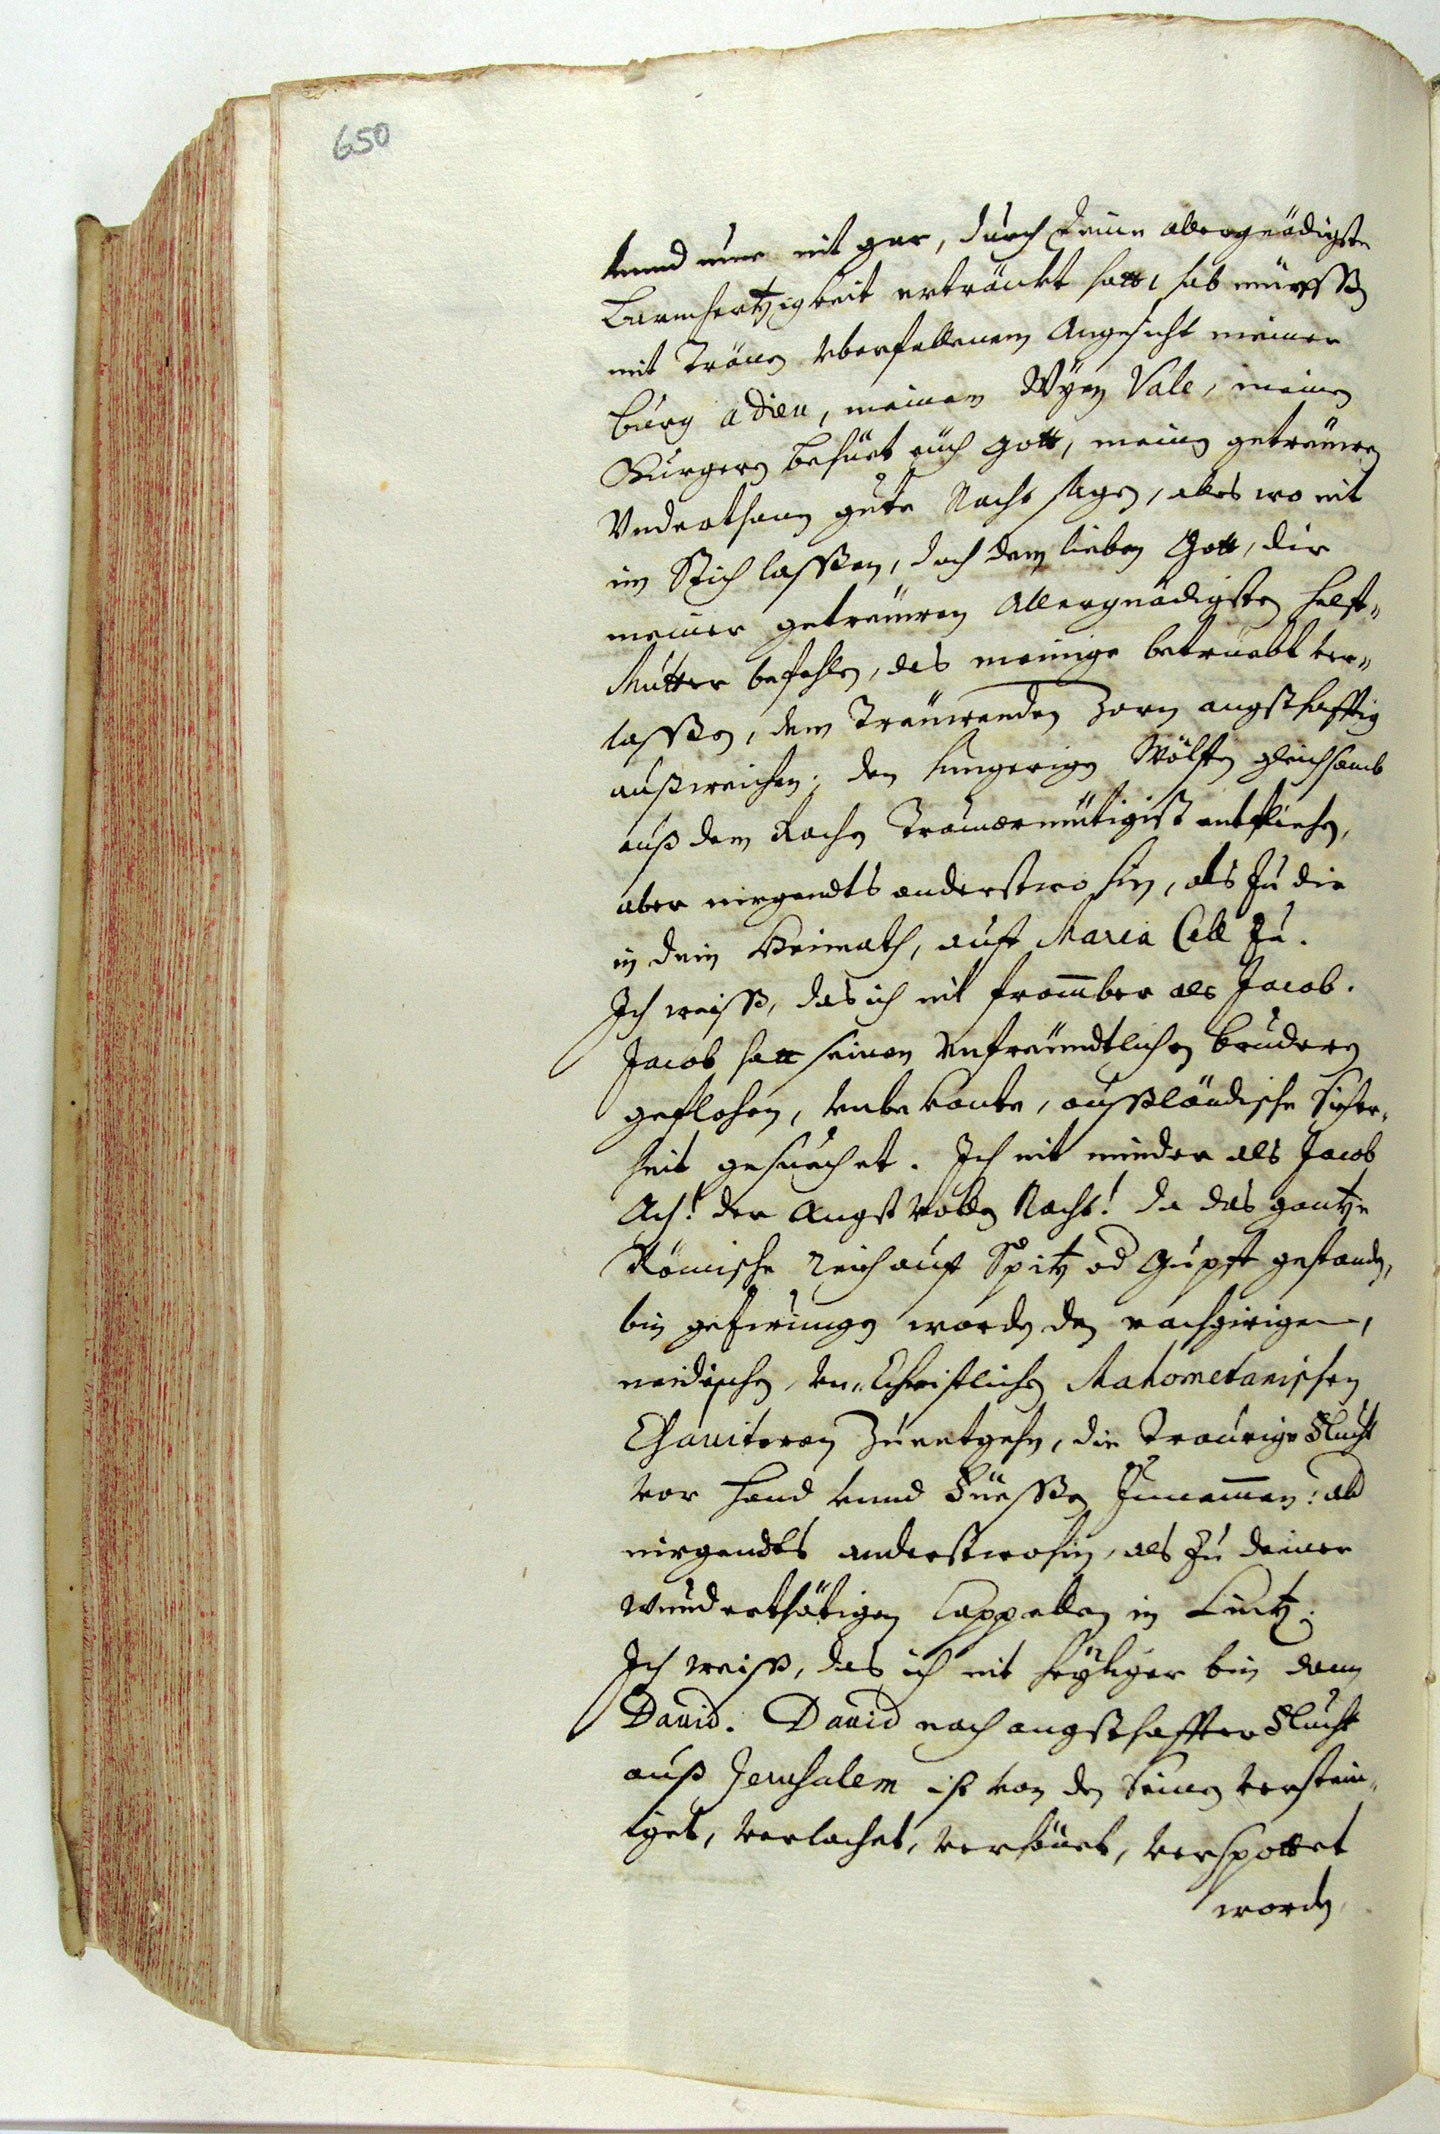 650
vnnd nur nit gar, durch deine allergnädigste
Barmhertzigkeit ertränkt hatt, hab müessen
mit Tränen vberfallenem Angesicht meiner
Burg adieu, meinem Wyen Vale, meinen
Burgern behüet eüch Gott, meinen getreüwen
Vnderthanen guete Nacht sagen, alles wo nit
im Stich lassen, doch dem lieben Gott, dir
meiner getreüwen Allergnädigsten Helff-
Mutter befohlen, das meinige betrüebt ver-
lassen, dem Träuwenden Zorn angsthafftig
außweichen, den hungerigen Wölffen gleichsamb
auß dem Rachen Trauwrmütigist entfliehen,
aber nirgendts anderstwo hin, als zu dir
in dein Heimath, auff Maria Cell zu.
Ich weiß, das ich nit frommber als Jacob.
Jacob hatt seinen vnfreündtlichen bruderen
geflohen, vnbekante, außländische Sicher-
heit gesuechet. Ich nit minder als Jacob
Ach! der Angstvollen Nacht! da das gantze
Römische Reich auff Spitz vnd Gupff gestanden,
bin gezwungen worden den rachgirigen,
neidischen, vn-Christlichen Mahometanischen
Chaniteren zuentgehen, die Traurige Flucht
vor Hand vnnd Füessen zunemmen: als
nirgendts anderstwohin, als zu deiner
wunderthätigen Cappellen in Lintz.
Ich weiß, das ich nit heyliger bin dann
Dauid. Dauid nach angsthaffter Flucht
auß Jerusalem ist von den Seinen verstein-
iget, verlachet, verhönet, verspottet
worden